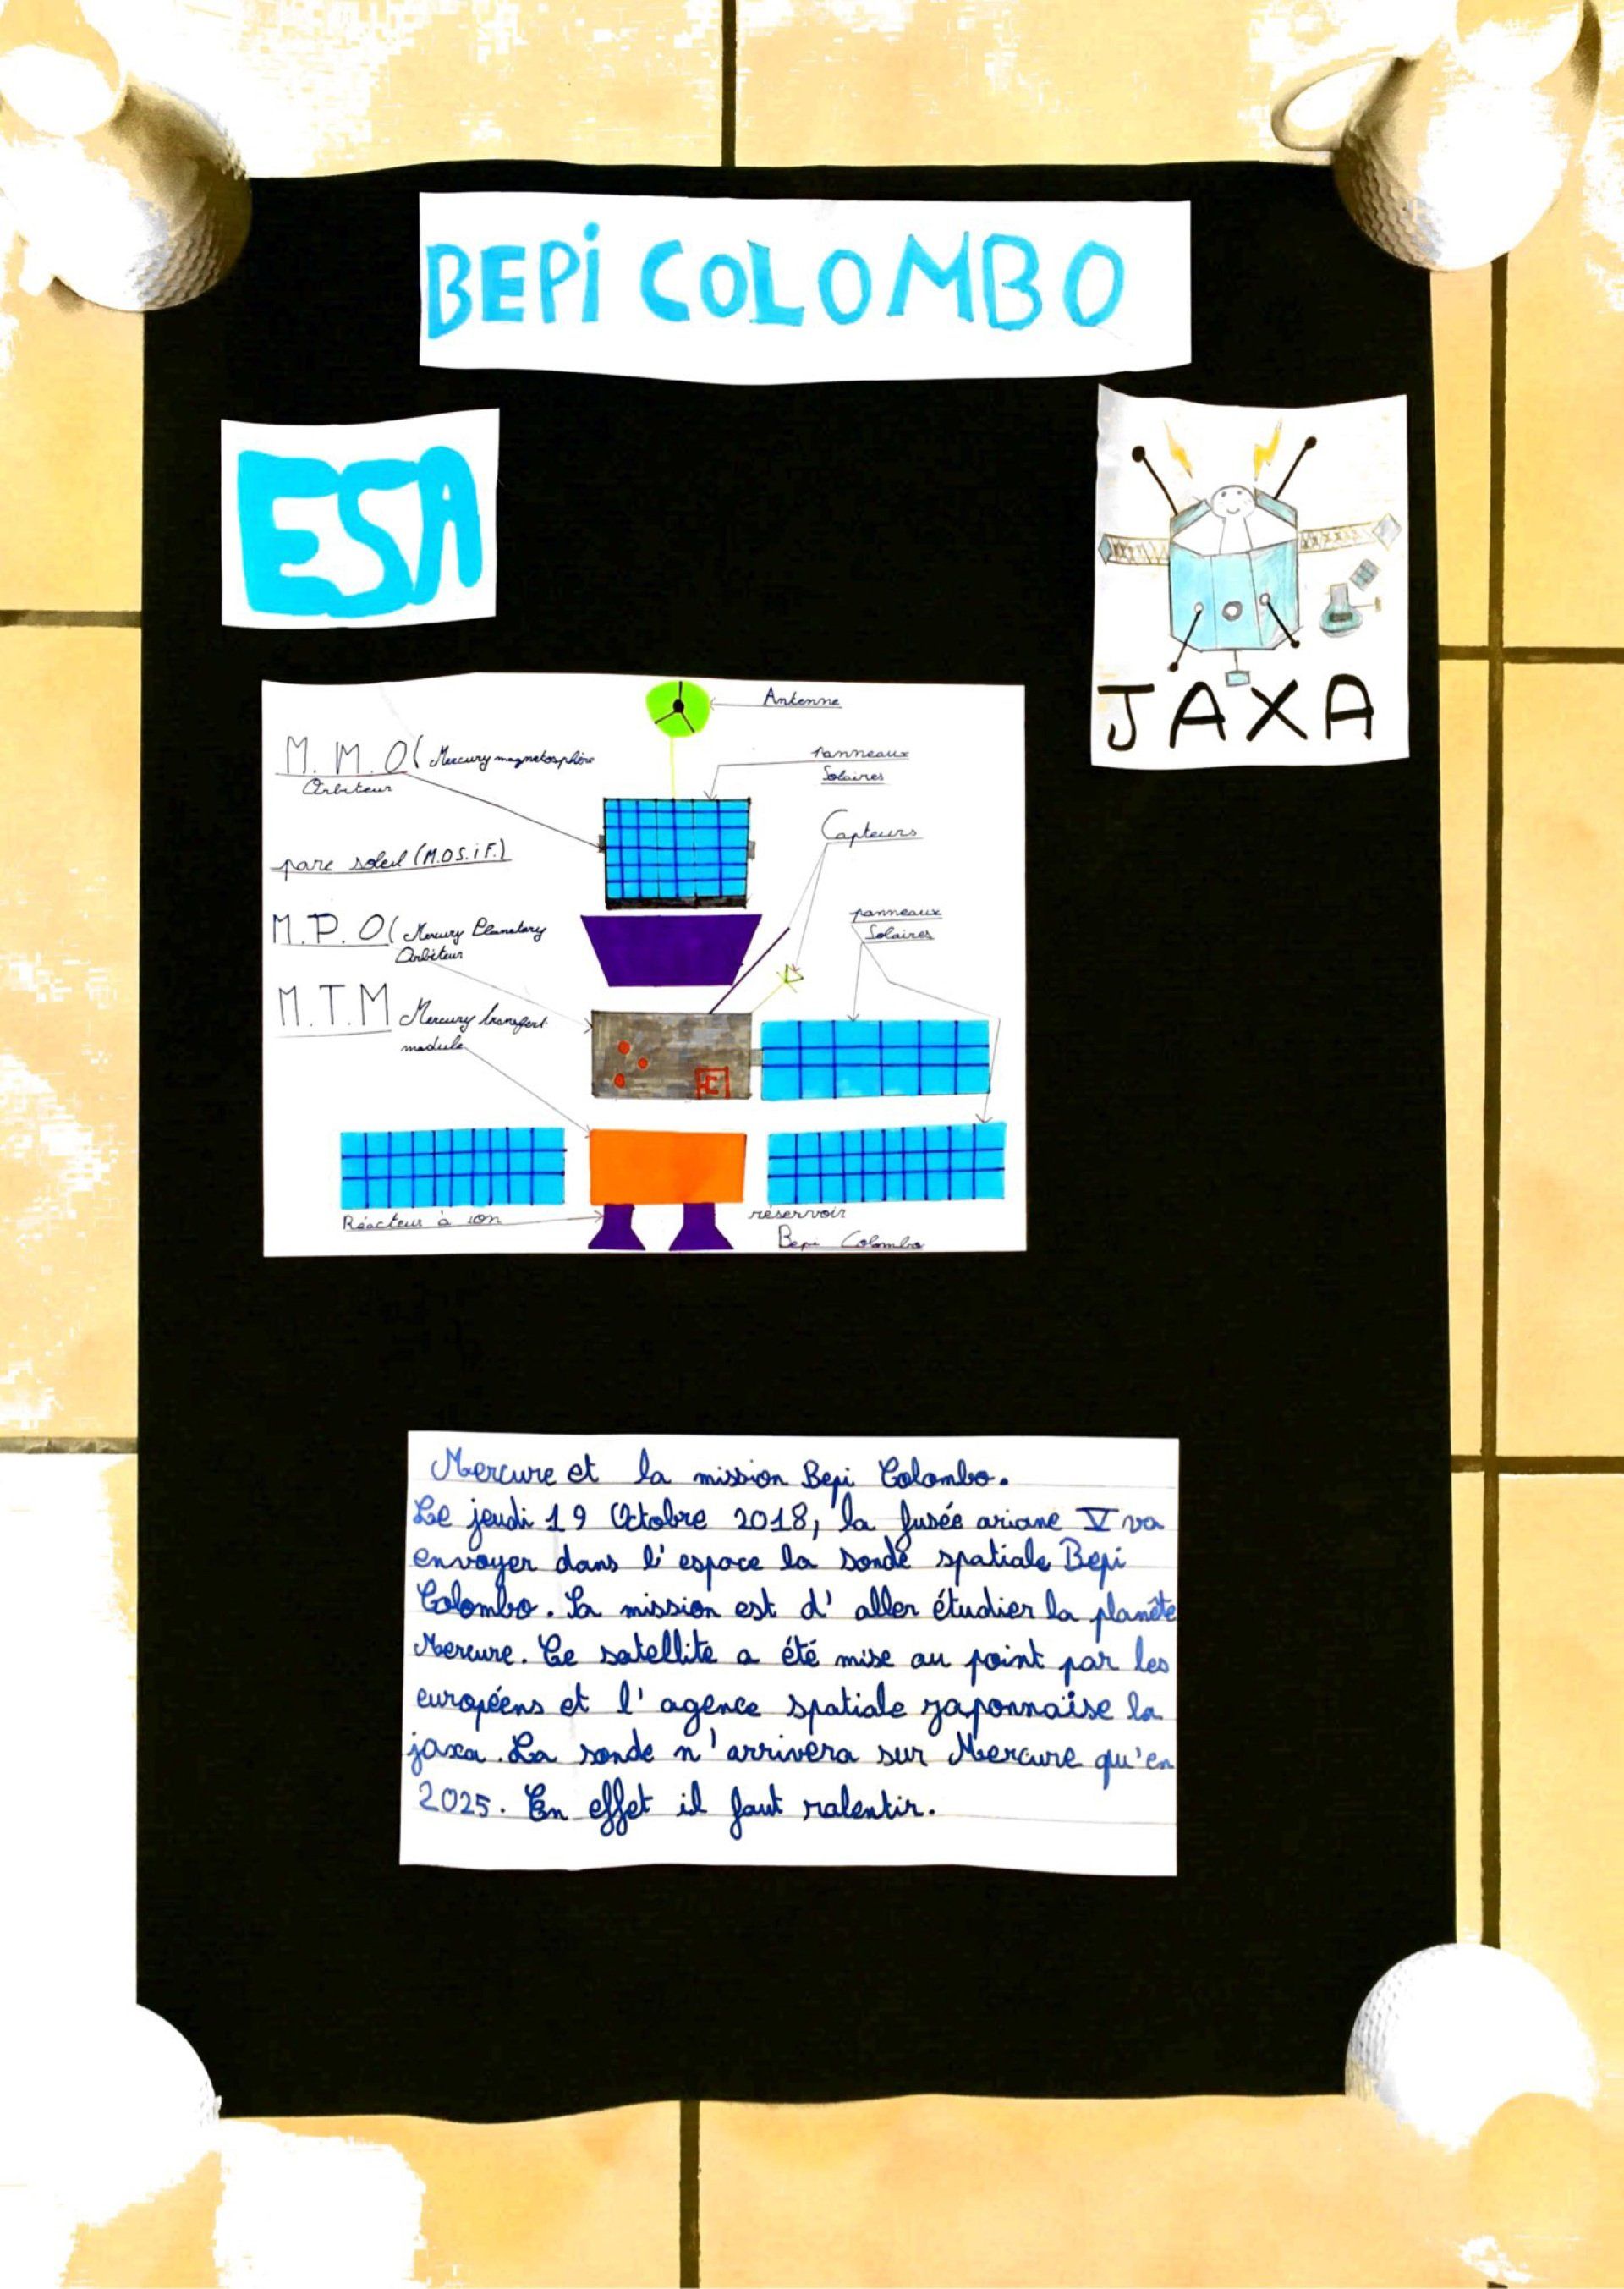 BEPi COLOMBO
ESA
JAXA
Antenne
M.M.O( Mercury magnetosphère
Orbiteur
panneaux
Solaires
Capteurs
pare soleil (M.O.S.i F.)
M.P.O( Mercury Planetary
Orbiteur
panneaux
Solaires
M.T.M Mercury transfert
module
Réacteur à ion
réservoir
Bepi Colombo
Mercure et la mission Bepi Colombo.
Le jeudi 19 Octobre 2018, la fusée ariane V va
envoyer dans l'espace la sonde spatiale Bepi
Colombo. Sa mission est d'aller étudier la planète
Mercure. Ce satellite a été mise au point par les
européens et l'agence spatiale japonnaise la
jaxa. La sonde n'arrivera sur Mercure qu'en
2025. En effet il faut ralentir.